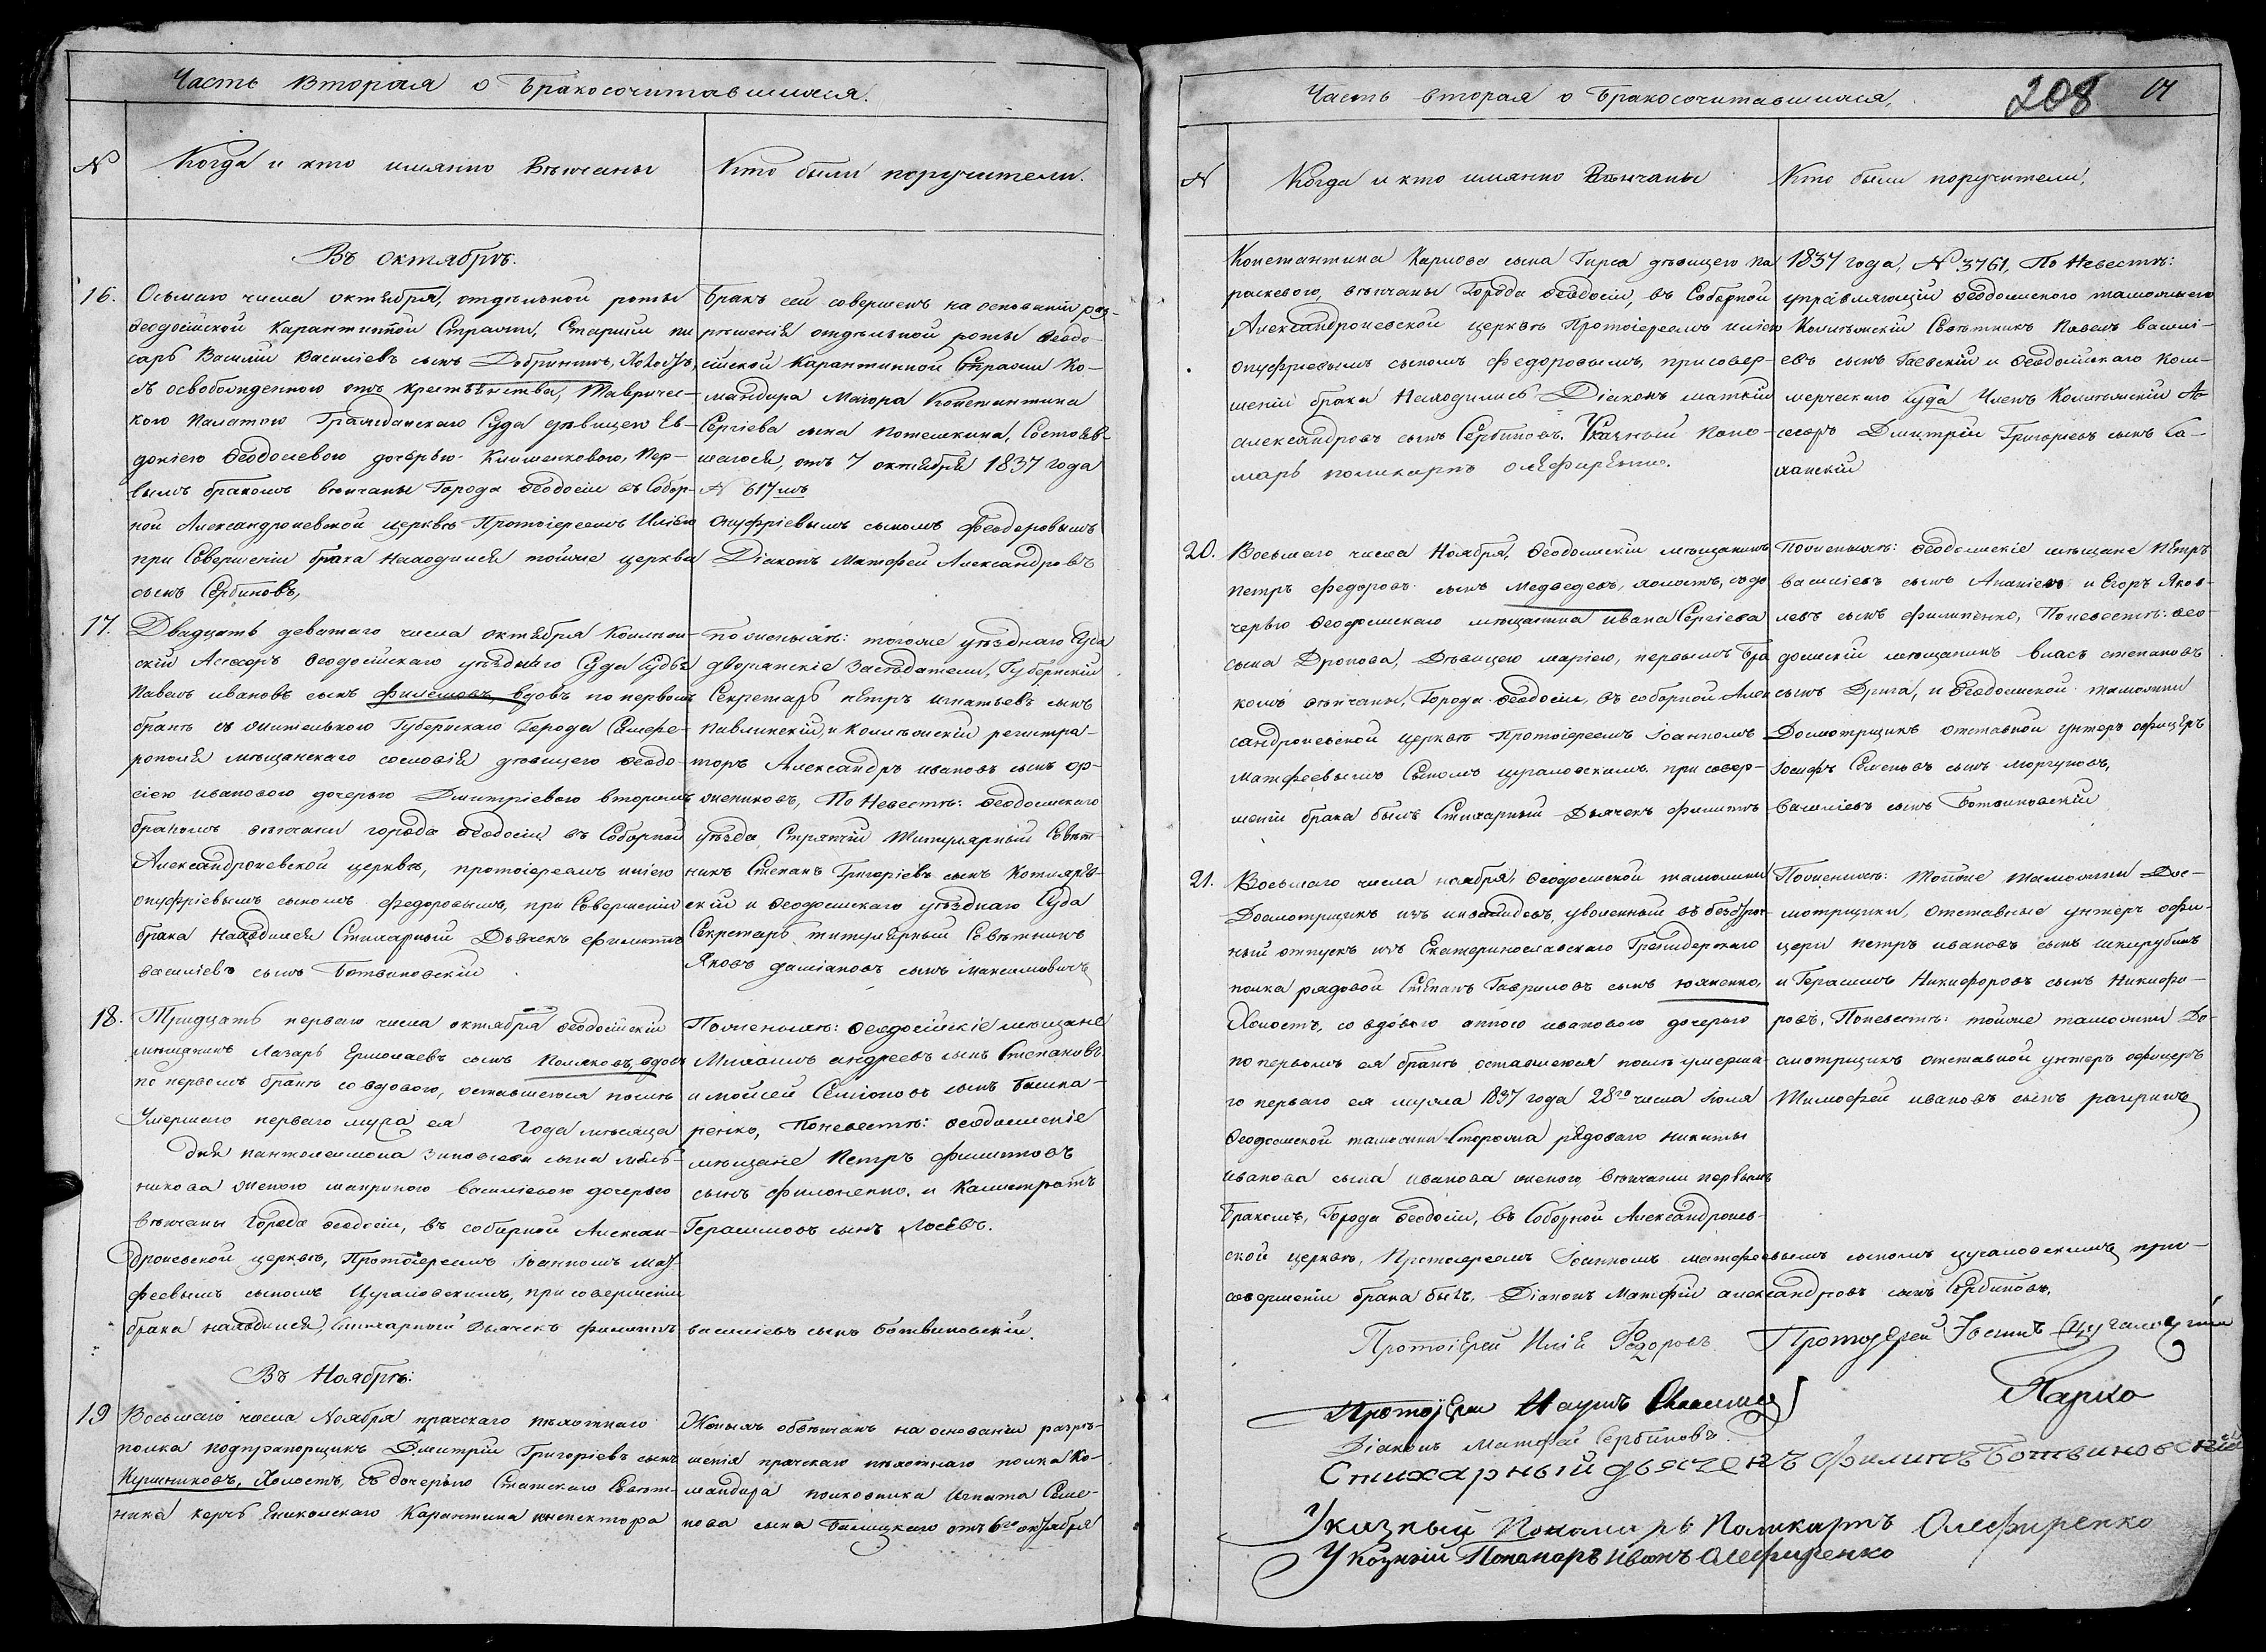 Часть Вторая о Бракосочитавшихся.
N
Когда и кто имянно Вѣнчаны
Кто были поручители.
Въ октябрѣ.
16.
Осьмаго числа октября, отдѣльной роты
Ѳеодосійской Карантинной Стражи, Старшій пи
сарь Василій Василіевъ сынъ Добрынинъ, Холостъ,
съ освобожденною отъ крестьянства, Тавричес-
кою Палатою Гражданскаго Суда дѣвицею Ев-
докіею Ѳеодосіевою дочерью Клименковою, Пер-
вымъ бракомъ вѣнчаны Города Ѳеодосіи въ Собор-
ной Александроневской церквѣ Протоіереемъ Иліею
при Совершеніи брака Находился тойже церкви
сынъ Сербиновъ,
Бракъ сей совершенъ на основаніи раз-
рѣшенія отдѣльной роты Ѳеодо-
сійской Карантинной Стражи Ко-
мандира Маіора Константина
Сергіева сына Потемкина, Состояв-
шагося, отъ 7 октября 1837 года
N 617мъ
Онуфріевымъ сыномъ Феодоровымъ
Діаконъ Матфей Александровъ
17.
Двадцать девятаго числа октября Коллеж-
скій Асесоръ Ѳеодосійскаго уѣзднаго Суда Судья
Павелъ Ивановъ сынъ вдовъ по первомъ
бракѣ съ жителькою Губернскаго Города Симфе-
рополя мѣщанскаго сословія дѣвицею Ѳеодо-
сіею Ивановою дочерью Дмитріевою вторымъ
бракомъ вѣнчаны города Ѳеодосіи въ Соборной
Александроневской церквѣ, протоіереемъ иліею
онуфріевымъ сыномъ Федоровымъ, при Совершеніи
брака Находился Стихарный Дьячекъ Филиппъ
василіевъ сынъ Ботвиновскій
По женихѣ: тогоже уѣзднаго Суда
дворянскіе Засѣдатели, Губернскій
Секретарь Петръ Игнатьевъ сынъ
Павлинскій, и Коллежскій регистра-
торъ Александръ Ивановъ сынъ
По Невестѣ: Ѳеодосійскаго
уѣзда Стряпчій Титулярный Совѣт-
никъ Степанъ Григоріевъ сынъ Котляре
скій и Ѳеодосійскаго уѣзднаго Суда
Секретарь титулярный Совѣтникъ
Яковъ даміановъ сынъ Максимовичъ
18.
Тридцать перваго числа октября Ѳеодосійскій
мѣщанинъ Лазарь Ермолаевъ сынъ Поляковъ, вдовъ
по первомъ бракѣ со вдовою, оставшеюся послѣ
Умершаго перваго мужа ея года мѣсяца
дня Пантелеимона Зиновіева сына Мель-
никова женою василіевою дочерью
вѣнчаны Города Ѳеодосіи, въ соборной Алексан-
дроневской церквѣ, Протоіереемъ Іоанномъ Мат-
феевымъ сыномъ Цугаловскимъ, при совершеніи
брака находился, Стихарный Дьячекъ Филиппъ василіевъ сынъ Ботвиновскій.
По женихѣ: Ѳеодосійскіе мѣщане
Михаилъ андреевъ сынъ Степановъ
и Мойсей Семіоновъ сынъ Башка-
ренко, По невестѣ: Ѳеодосійскіе
мѣщане Петръ Филиповъ
сынъ Филоненко, и Калистратъ
Герасимовъ сынъ Лосевъ.
Въ Ноябрѣ:
19
Восьмаго числа Ноября прагскаго пѣхотнаго
полка подпрапорщикъ Дмитрій Григоріевъ сынъ
Кушниковъ, Холостъ, съ дочерью Статскаго Совѣт-
ника керчь Ениколскаго Карантина инспектора
Женихъ обвѣнчанъ на основаніи разрѣ-
шенія прагскаго пѣхотнаго полка Ко-
мандира полковника Игната Семе-
нова сына Бѣлицкаго отъ 6го октября
Часть вторая о Бракосочитавшихся,
208
N
Когда и кто имянно Вѣнчаны
Кто были поручители,
Константина Карлова сына Гирса дѣвицею Па
раскевою, вѣнчаны Города Ѳеодосіи, въ Соборной
Александроневской церквѣ Протоіереемъ иліею
онуфріевымъ сыномъ Федоровымъ, при совер-
шеніи брака Находились Діаконъ матфій
александровъ сынъ Сербиновъ. Указный Поно-
марь поликарпъ олефиренко.
1837 года, N 3761, По Невестѣ:
управляющій Ѳеодосійскою таможнею
Колежскій Совѣтникъ Павелъ василі-
евъ сынъ Гаевскій и Ѳеодосійскаго Ком-
мерческаго Суда Членъ Колежскій Ас-
сесоръ Дмитрій Григорьевъ сынъ Са-
ханскій
20.
Восьмаго числа Ноября, Ѳеодосійскій мѣщанинъ
Петръ Федоровъ сынъ Медведевъ, холостъ, съ до
черью Ѳеодосійскаго мѣщанина Ивана Сергіева
сына Дронова, Дѣвицею маріею, первымъ бра
комъ вѣнчаны, Города Ѳеодосіи, въ соборной Алек
сандроневской церквѣ протоіереемъ Іоанномъ
Матфеевымъ Сыномъ цугаловскимъ при совер-
шеніи брака былъ Стихарный Дьячекъ Филиппъ
По женихѣ: Ѳеодосійскіе мѣщане Петръ
василіевъ сынъ Ананіевъ и Егоръ Яков-
левъ сынъ Филипенко, По невестѣ: Ѳео-
досійскій мѣщанинъ Власъ степановъ
сынъ Дрига, и Ѳеодосійской таможни
Досмотрщикъ отставной унтеръ офицеръ
Іосифъ Семеновъ сынъ Моргуновъ,
Василіевъ сынъ Ботвиновскій
21.
Восьмаго числа ноября, Ѳеодосійской таможни
Досмотрщикъ изъ инвалидовъ, уволенный въ безсроч-
ный отпускъ изъ Екатеринославскаго Гренадерскаго
полка рядовой Степанъ Гавриловъ сынъ
Холостъ, со вдовою анною ивановою дочерью
по первомъ ея бракѣ оставшеюся послѣ умерша-
го перваго ея мужа 1837 года 28го числа Іюля
Ѳеодосійской таможни Сторожа рядоваго никиты
Иванова сына Иванова женою, вѣнчаны первымъ
бракомъ, Города Ѳеодосіи, въ Соборной Александронев-
ской церквѣ, Протоіереемъ Іоанномъ матфеевымъ сыномъ цугаловскимъ при-
совершеніи брака былъ, Діаконъ Матфій александровъ сынъ Сербиновъ,
По женихѣ: Тойже таможни Дос-
мотрщики, отставные унтеръ офи-
церы петръ ивановъ сынъ
и Герасимъ Никифоровъ сынъ Никифо-
ровъ, По невестѣ: тойже таможни До-
смотрщикъ отставной унтеръ офицеръ
Тимофей ивановъ сынъ
Протоіерей Илія Федоровъ
Протоіерей Іоаннъ Цугаловскій
Протоіерей Наумъ
Діаконъ Матфей Сербиновъ.
Стихарный дьячекъ Филипъ Ботвиновскій
Указный Понамарь Поликарпъ Олефиренко
Указный Понамарь Иванъ Олефиренко